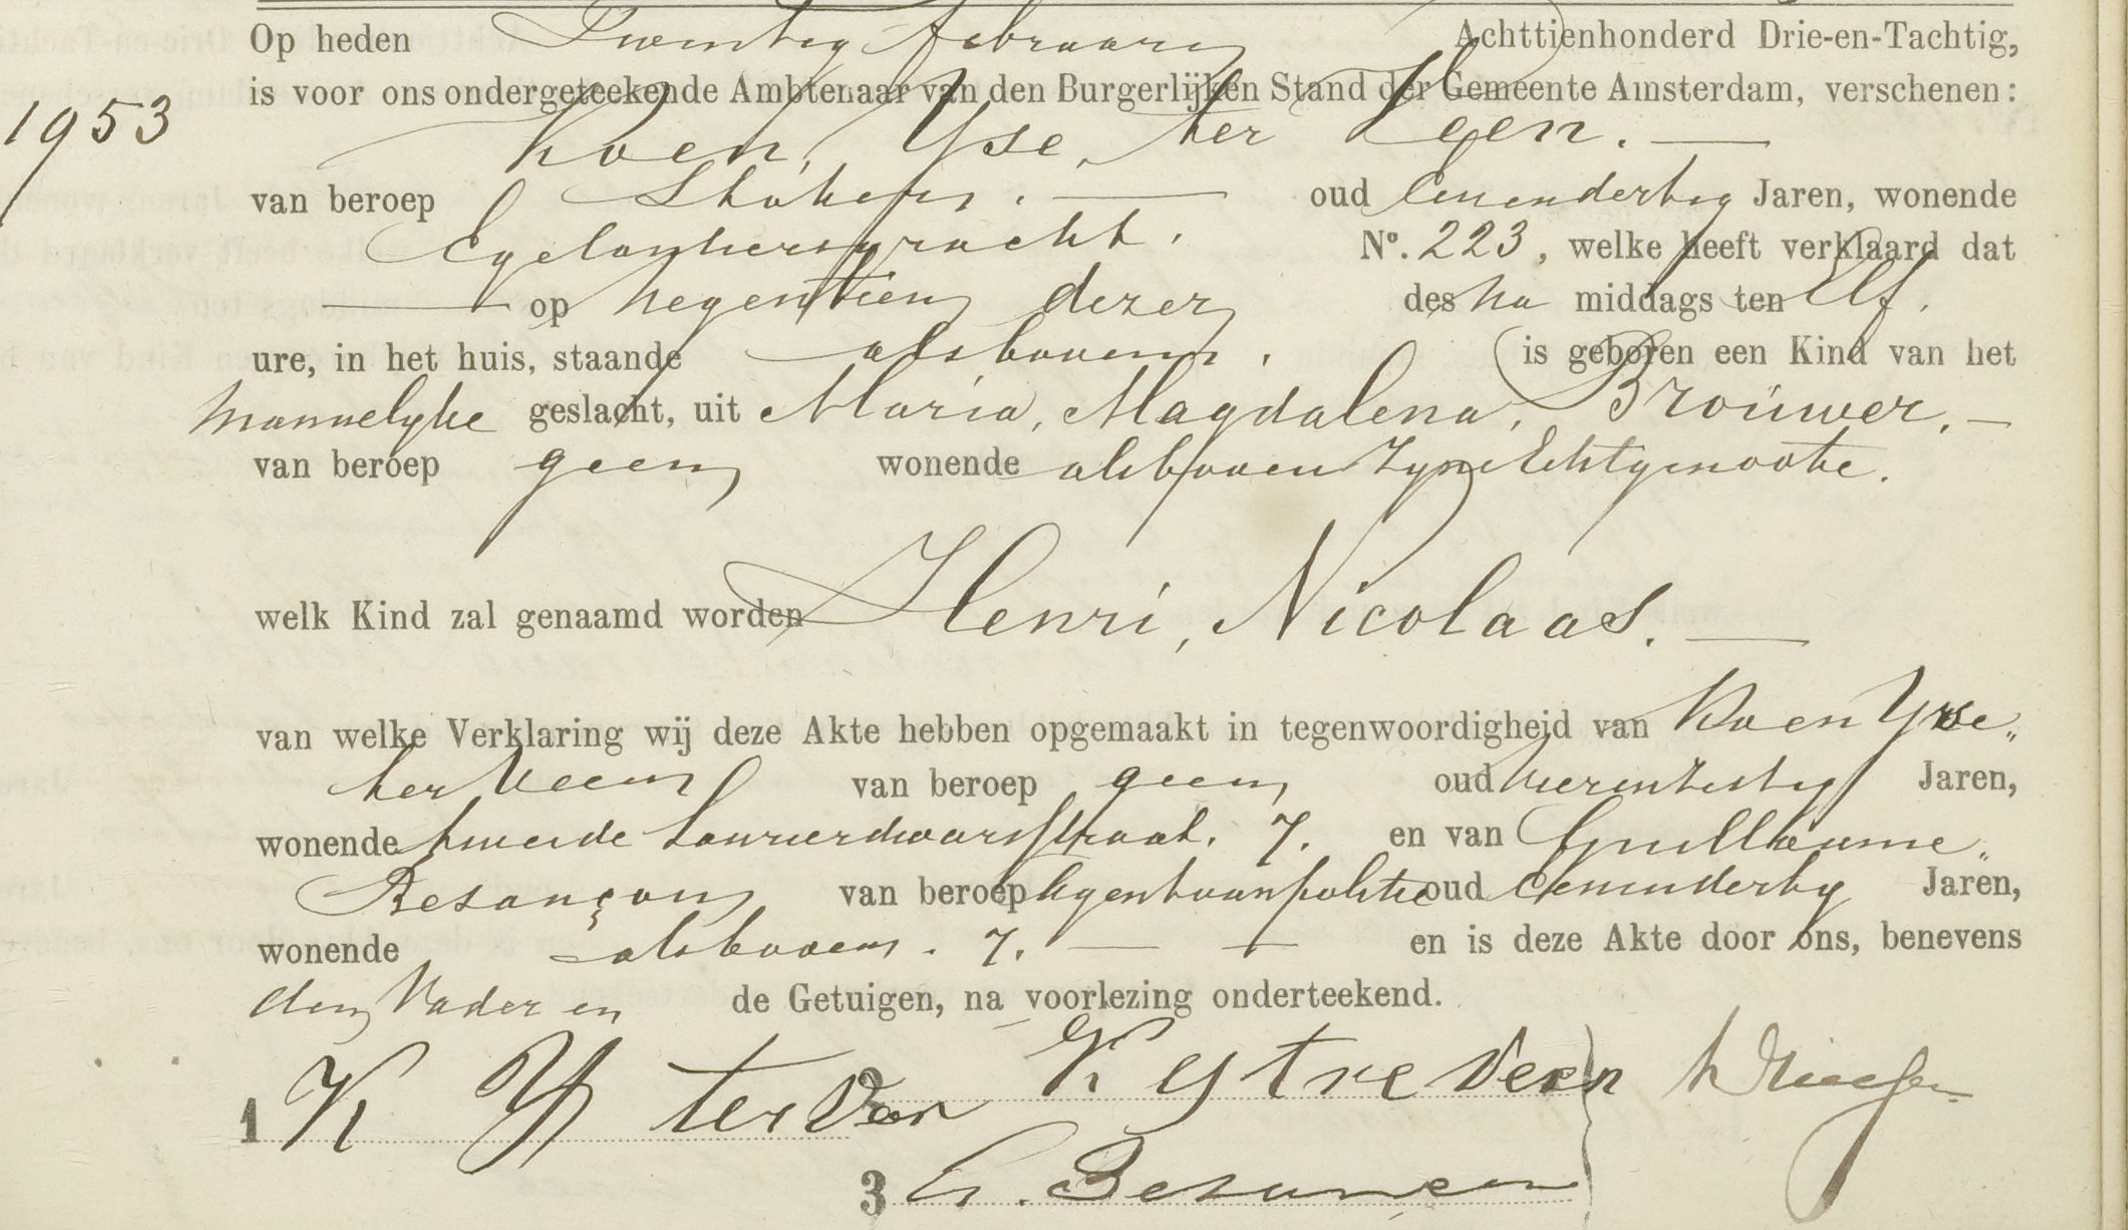 Op heden Twintig februari Achttienhonderd Drie-en-Tachtig,
is voor ons ondergeteekende Ambtenaar van den Burgerlijken Stand der Gemeente Amsterdam, verschenen:
1953
Koen, Yse, ter Veen. —
van beroep Stoker. — oud Eenendertig Jaren, wonende
Egelantiersgracht. No. 223, welke heeft verklaard dat
— op negentien dezer des na middags ten Elf.
ure, in het huis, staande alsboven. is geboren een Kind van het
Mannelyke geslacht, uit Maria, Magdalena, Brouwer. —
van beroep geen wonende alsboven zyne Echtgenoote.
welk Kind zal genaamd worden Henri, Nicolaas. —
van welke Verklaring wij deze Akte hebben opgemaakt in tegenwoordigheid van Koen Yse„
ter Veen van beroep geen oud Jaren,
wonende tweede Laurierdwarsstraat. 7. en van Guillaume„
Besançon van beroep Agent van politie oud Eenendertig Jaren,
wonende alsboven. 7. — — en is deze Akte door ons, benevens
den Vader en de Getuigen, na voorlezing onderteekend.
1 K Y ter Veen 2 K Y tre Veen
3 G. Besançon